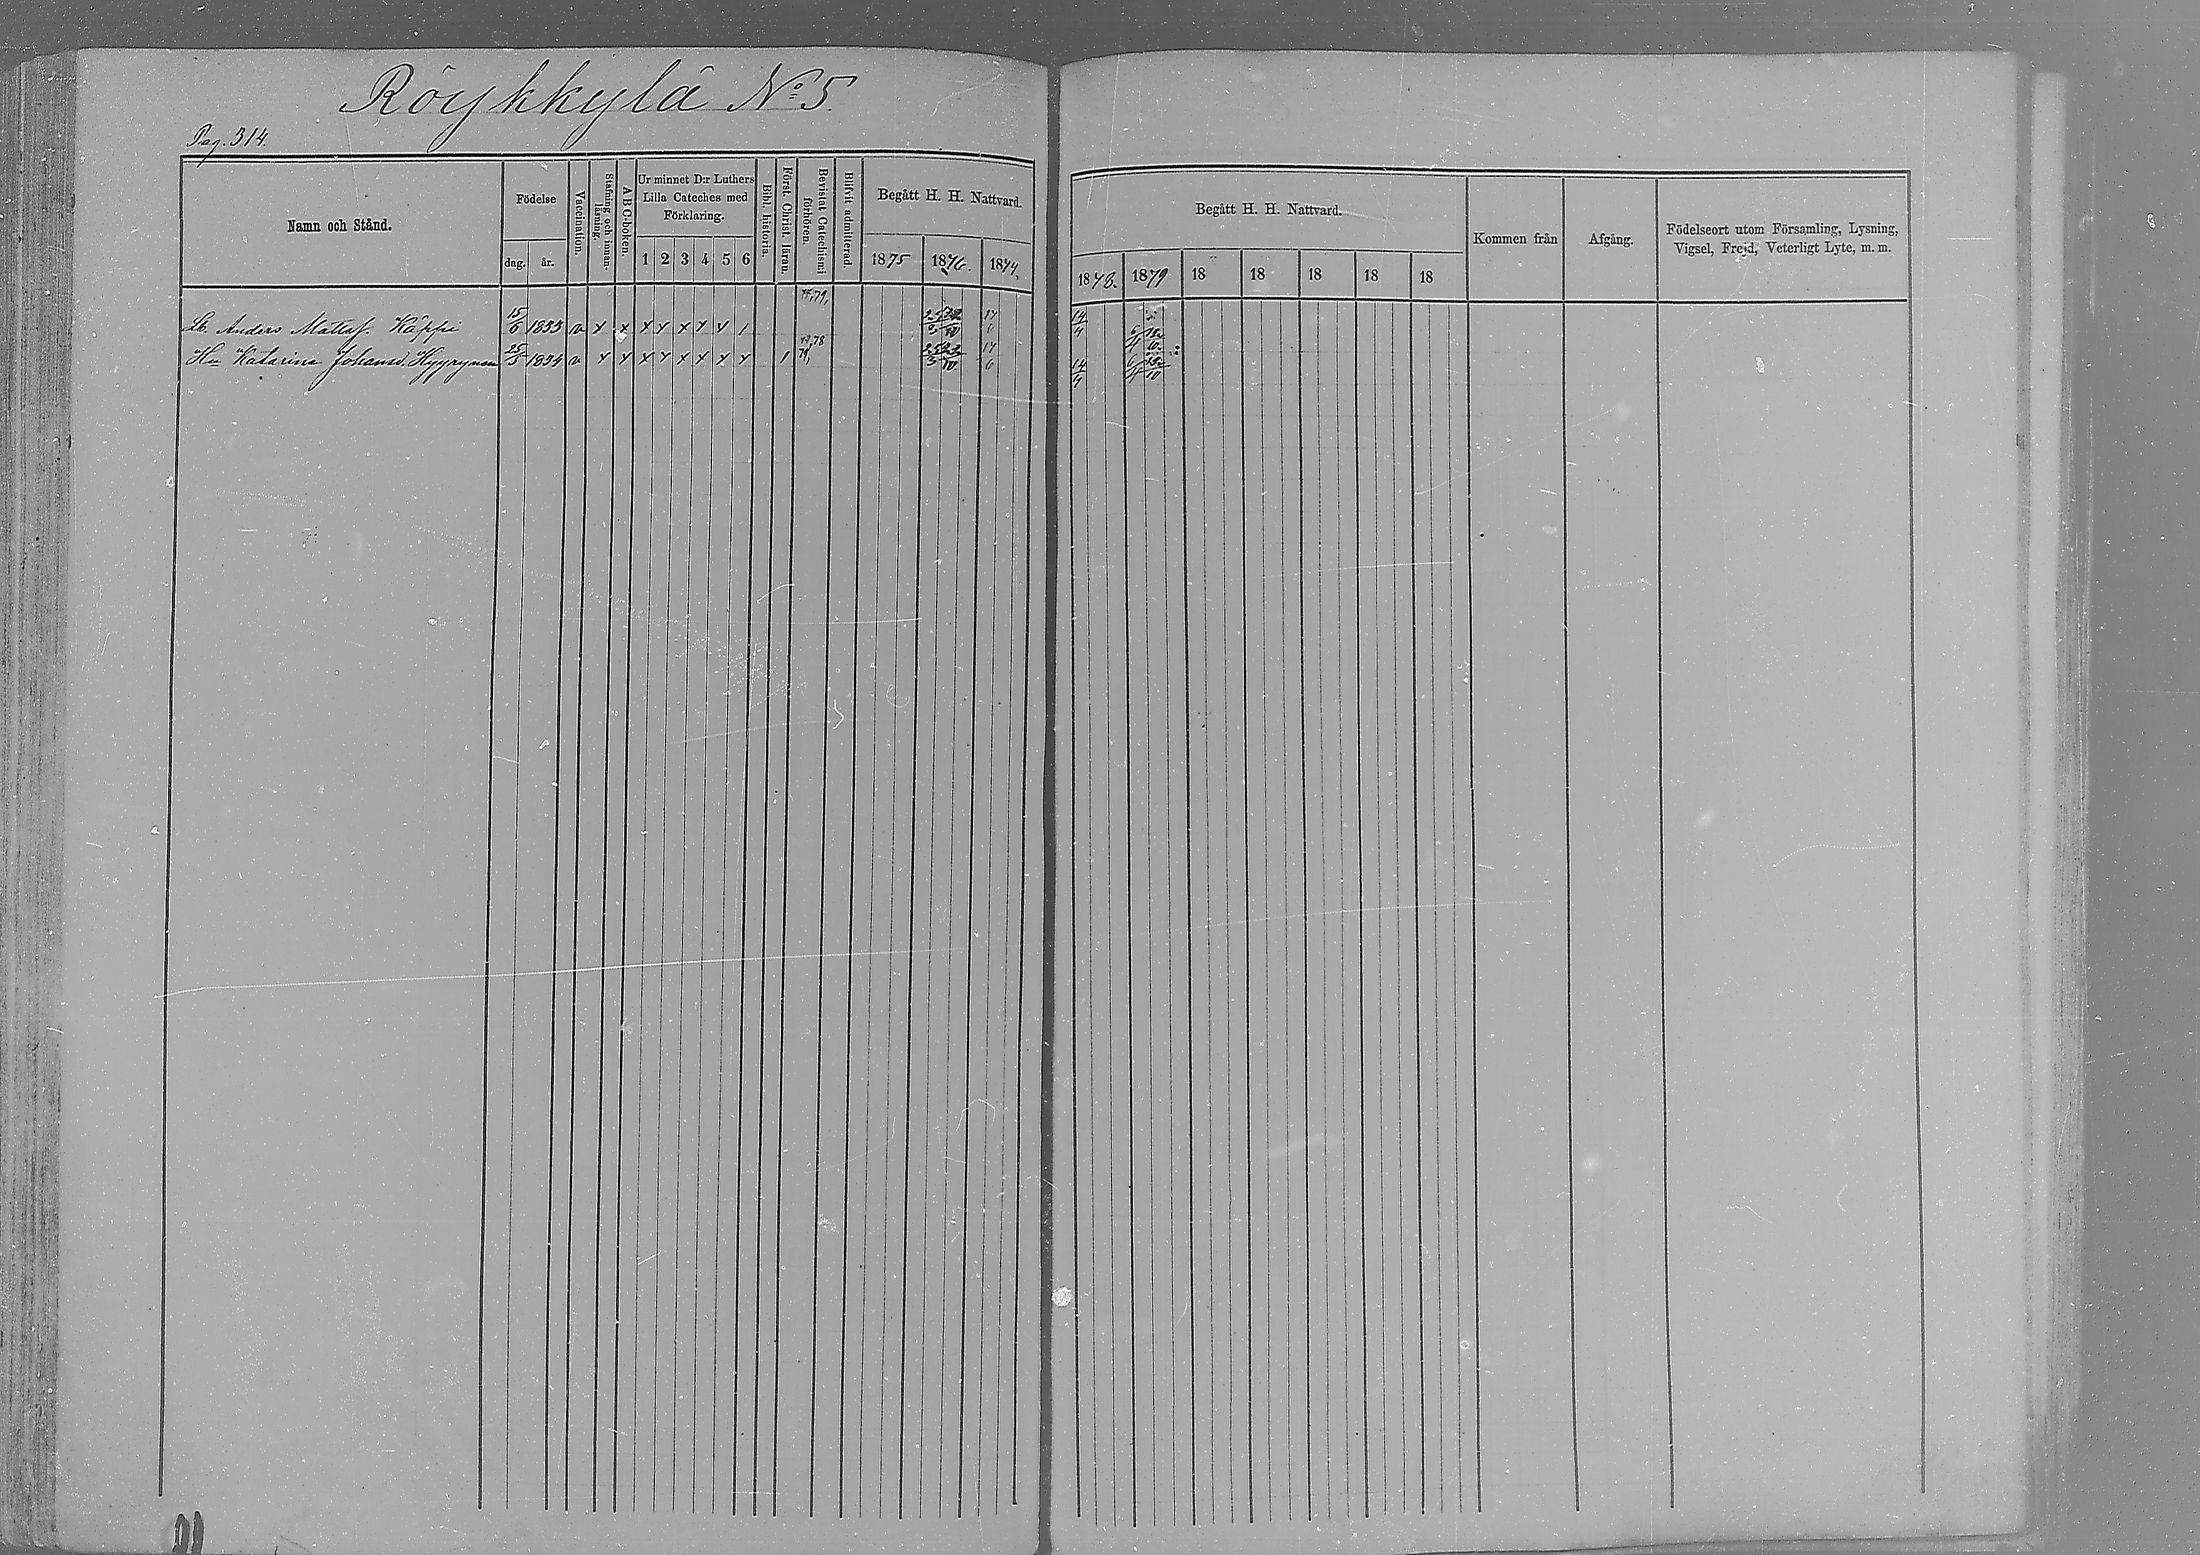 Röykkylä No 5.
Pag. 314.
Namn och Stånd.
Födelse
dag. år.
Vaccination.
Stafning och innan-läsning.
A B C-boken.
Ur minnet D:r Luthers
Lilla Cateches med
Förklaring.
1 2 3 4 5 6
Bibl. historia.
Först. Christ. läran.
Bevistat Catechismi förhören.
Blifvit admitterad.
Begått H. H. Nattvard.
1875 1876. 1877.
Begått H. H. Nattvard.
1878. 1879 18 18 18 18 18
Kommen från
Afgång.
Födelseort utom Församling, Lysning,
Vigsel, Frejd, Veterligt Lyte, m. m.
Anders Mattsf. Käppi 15/6 1833 v x x x x x x x 1 79, 17/6 14/4
Hu Katarina Johansd. Hyyrynen 25/3 1834 v x x x x x x x x 1 78 79, 17/6 14/4